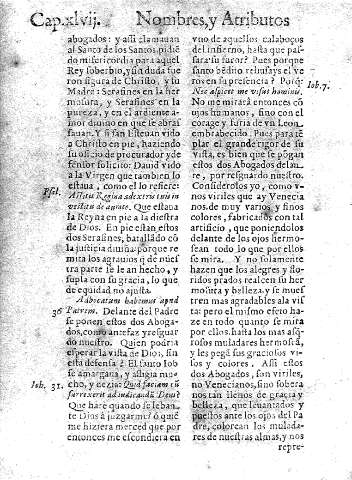 Cap. xlvij. Nombres, y Atributos
abogados: y assi clamauan
al Santo de los Santos, pidiẽ
do misericordia para aquel
Rey soberbio, y sin duda fue
ron sigura de Christo, y su
Madre: Serafines en la her
mosura, y Serafines en la
pureza, y en el ardiente a-
mor diuino en que se abras
sauan. Y si san Esteuan vido
a Christo en pie, haziendo
su oficio de procurador y de
fensor solicito: Dauid vido
a la Virgen que tambien lo
estaua, como el lo refiere:
Psal. Astitit Regina à dextris tuis in
vestitu de aurato. Que estaua
la Reyna en pie a la diestra
de Dios. En pie estan estos
dos Serafines, batallãdo cõ
la justicia diuina porque re
mita los agrauios q̃ de nues
tra parte se le an hecho, y
supla con su gracia, lo que
de equidad no ajusta
Aduocatum habemus apud
36 Patrem. Delante del Padre
se ponen estos dos Aboga-
dos, como antefaz y resguar
do nuestro. Quien podria
esperar la vista de Dios, sin
esta defensa? El santo Iob
se amargaua, y afligia mu-
Iob. 31. cho, y dezia: Quid faciam cũ
surrexerit ad iudicandũ Deus?
Que hare quando se leban-
te Dios à juzgarme? ò que
me hiziera merced que por
entonces me escondiera en
vno de aquellos calaboços
del infierno, hasta que pas-
sara su furor? Pues porque
santo bẽdito rehusays el ve
ros en su presencia? Porq̃:
Nec aspiciet me visus hominis. Iob. 7.
No me mirarà entonces cõ
ojos humanos, sino con el
corage y furia de vn Leon
embrabecido. Pues para tẽ
plar el grande rigor de su
vista, es bien que se pongan
estos dos Abogados delan-
te, por resguardo nuestro.
Considerolos yo, como v-
nos viriles que ay Venecia
nos, de muy varios, y finos
colores, fabricados con tal
artificio, que poniendolos
delante de los ojos hermo-
sean todo lo que por ellos
se mira. Y no solamente
hazen que los alegres y flo-
ridos prados realcen su her
mosura y belleza, y se mues
tren mas agradables a la vis
ta: pero el mismo efeto ha-
zen en todo quanto se mira
por ellos, hasta los mas as-
rosos muladares hermosea,
y les pegã sus graciosos vi-
sos y colores. Assi estos
dos Abogados, son viriles,
no Venecianos, sino sobera
nos tan llenos de gracia y
belleza, que leuantados y
puestos ante los ojos del Pa
dre, colorean los mulada-
res de nuestras almas, y nos
repre-